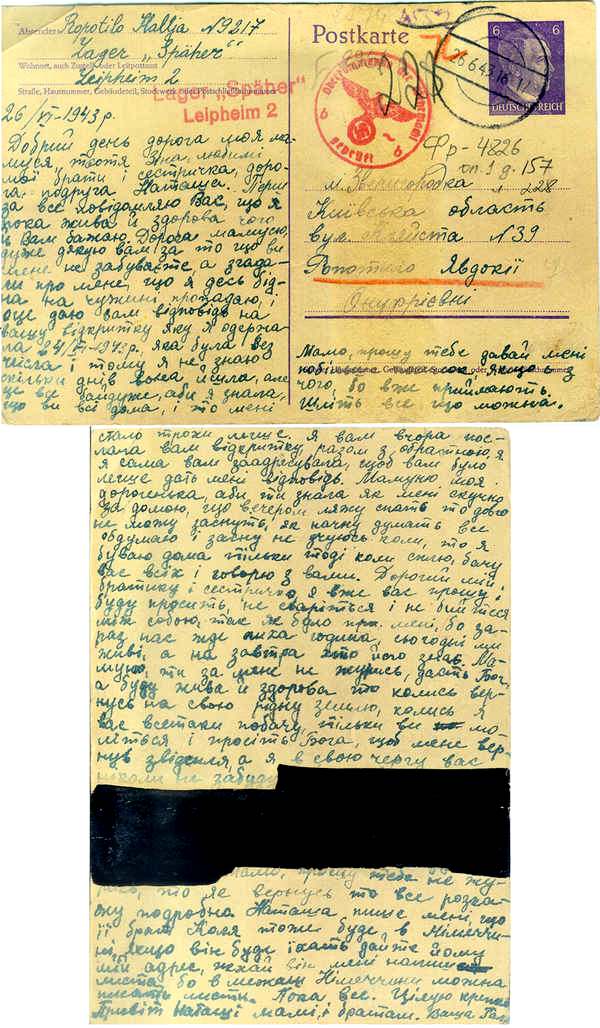 Absender: Ropotilo Hallja N 9217
Lager „Späher"
Wohnort, auch Zustell- oder Leitpostamt
Leipheim 2
Straße, Hausnummer, Gebäudeteil, Stockwerk oder Postschließfachnummer
Lager „Späher"
Leipheim 2
26/VI-1943 р.
Добрий день дорога моя ма-
муся тьотя Зіна, любимі
мої брати і сестричка, доро-
га подруга Наташа. Перш
за все повідомляю Вас, що я
пока жива й здорова чого
й Вам бажаю. Дорога мамусю,
дуже дякую вам за то що ви
мене не забуваєте, а згада-
ли про мене, що я десь бід-
на на чужині пропадаю, і
оце даю вам відповідь на
вашу відкритку яку я одержа-
ла 24/VI-1943р., яка була без
числа і тому я не знаю
скільки днів вона йшла, але
це все байдуже, аби я знала,
що ви всі дома, і то мені
Postkarte
6 6
DEUTSCHES REICH
25.6.43.16
Oberkommando der Wehrmacht
geprüft
6 6
228
Фр-4826
оп. 1 д. 157
л 228
м. Звенигородка
Київська область
вул. N 39
Ропотило Явдокії
Онуфрієвні
Мамо, прошу тебе давай мені
якщо є з
чого, бо вже приймають.
Шліть все що можна.
стало трохи легше. Я вам вчора пос-
лала вам відкритку разом з обратною, я
я сама вам заадресувала, щоб вам було
легше дать мені відповідь. Мамуню моя
дорогенька, аби ти знала як мені скучно
за домою, що вечером ляжу спать то довго
не можу заснуть, як начну думать все
обдумаю і засну не чуюсь коли, то я
буваю дома тільки тоді коли сплю, бачу
вас всіх і говорю з вами. Дорогий мій
братику і сестричко, я вже вас прошу і
буду просить, не сваріться і не бийтеся
між собою, так як було при мені, бо за-
раз нас жде лиха година, сьогодні ми
живі, а на завтра хто його знає. Ма-
муню, ти за мене не журись, дасть Бог,
а буду жива й здорова то колись вер-
нусь на свою рідну землю, колись я
вас всетаки побачу, тільки ви мо-
літься і просіть Бога, щоб мене вер-
нув звідсиля, а я в свою чергу вас
ніколи не забуду
Мамо, прошу тебе не жу-
рись, то як вернусь то все розка-
жу подробна. Наташа пише мені, що
її брат Коля тоже буде в Німеччи-
ні, якщо він буде їхать дайте йому
мій адрес, нехай він мені напише
листа бо в межах Німеччини можна
писать листи. Пока, все. Цілую крепко
Привіт Наташі мамі, і братам. Ваша Галя